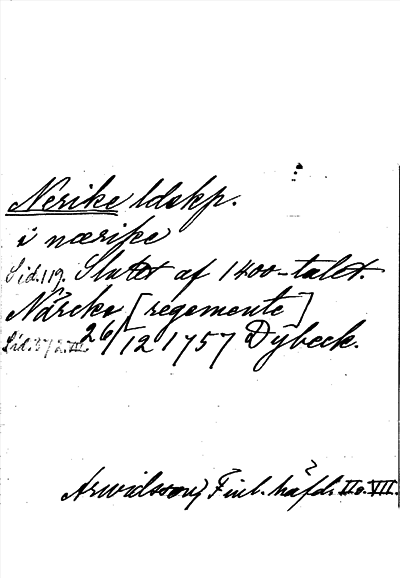 Nerike ldskp.
i nærike
Sid. 119. Slutet af 1400-talet.
Närcke [regemente]
Sid. 372. III. 26/12 1757 Dÿbeck.
Arwidsson, Finl. häfdr II o. VII.